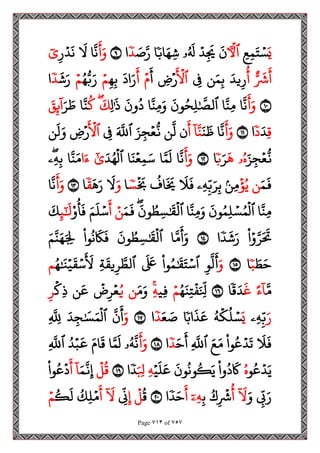 يَسْتَمِعِ ٱلْـَٔانَ يَجِدْ لَهُۥ شِهَابًا رَّصَدًا ٩ وَأَنَّا لَا نَدْرِىٓ
أَشَرٌّ أُرِيدَ بِمَن فِى ٱلْأَرْضِ أَمْ أَرَادَ بِهِمْ رَبُّهُمْ رَشَدًا
١٠ وَأَنَّا مِنَّا ٱلصَّـٰلِحُونَ وَمِنَّا دُونَ ذَٰلِكَ ۖ كُنَّا طَرَآئِقَ
قِدَدًا ١١ وَأَنَّا ظَنَنَّآ أَن لَّن نُّعْجِزَ ٱللَّهَ فِى ٱلْأَرْضِ وَلَن
نُّعْجِزَهُۥ هَرَبًا ١٢ وَأَنَّا لَمَّا سَمِعْنَا ٱلْهُدَىٰٓ ءَامَنَّا بِهِۦ ۖ
فَمَن يُؤْمِنۢ بِرَبِّهِۦ فَلَا يَخَافُ بَخْسًا وَلَا رَهَقًا ١٣ وَأَنَّا
مِنَّا ٱلْمُسْلِمُونَ وَمِنَّا ٱلْقَـٰسِطُونَ ۖ فَمَنْ أَسْلَمَ فَأُو۟لَـٰٓئِكَ
تَحَرَّوْا۟ رَشَدًا ١٤ وَأَمَّا ٱلْقَـٰسِطُونَ فَكَانُوا۟ لِجَهَنَّمَ
حَطَبًا ١٥ وَأَلَّوِ ٱسْتَقَـٰمُوا۟ عَلَى ٱلطَّرِيقَةِ لَأَسْقَيْنَـٰهُم
مَّآءً غَدَقًا ١٦ لِّنَفْتِنَهُمْ فِيهِ ۚ وَمَن يُعْرِضْ عَن ذِكْرِ
رَبِّهِۦ يَسْلُكْهُ عَذَابًا صَعَدًا ١٧ وَأَنَّ ٱلْمَسَـٰجِدَ لِلَّهِ
فَلَا تَدْعُوا۟ مَعَ ٱللَّهِ أَحَدًا ١٨ وَأَنَّهُۥ لَمَّا قَامَ عَبْدُ ٱللَّهِ
يَدْعُوهُ كَادُوا۟ يَكُونُونَ عَلَيْهِ لِبَدًا ١٩ قُلْ إِنَّمَآ أَدْعُوا۟
رَبِّى وَلَآ أُشْرِكُ بِهِۦٓ أَحَدًا ٢٠ قُلْ إِنِّى لَآ أَمْلِكُ لَكُمْ
Page ٧١٣ of ٧٥٧